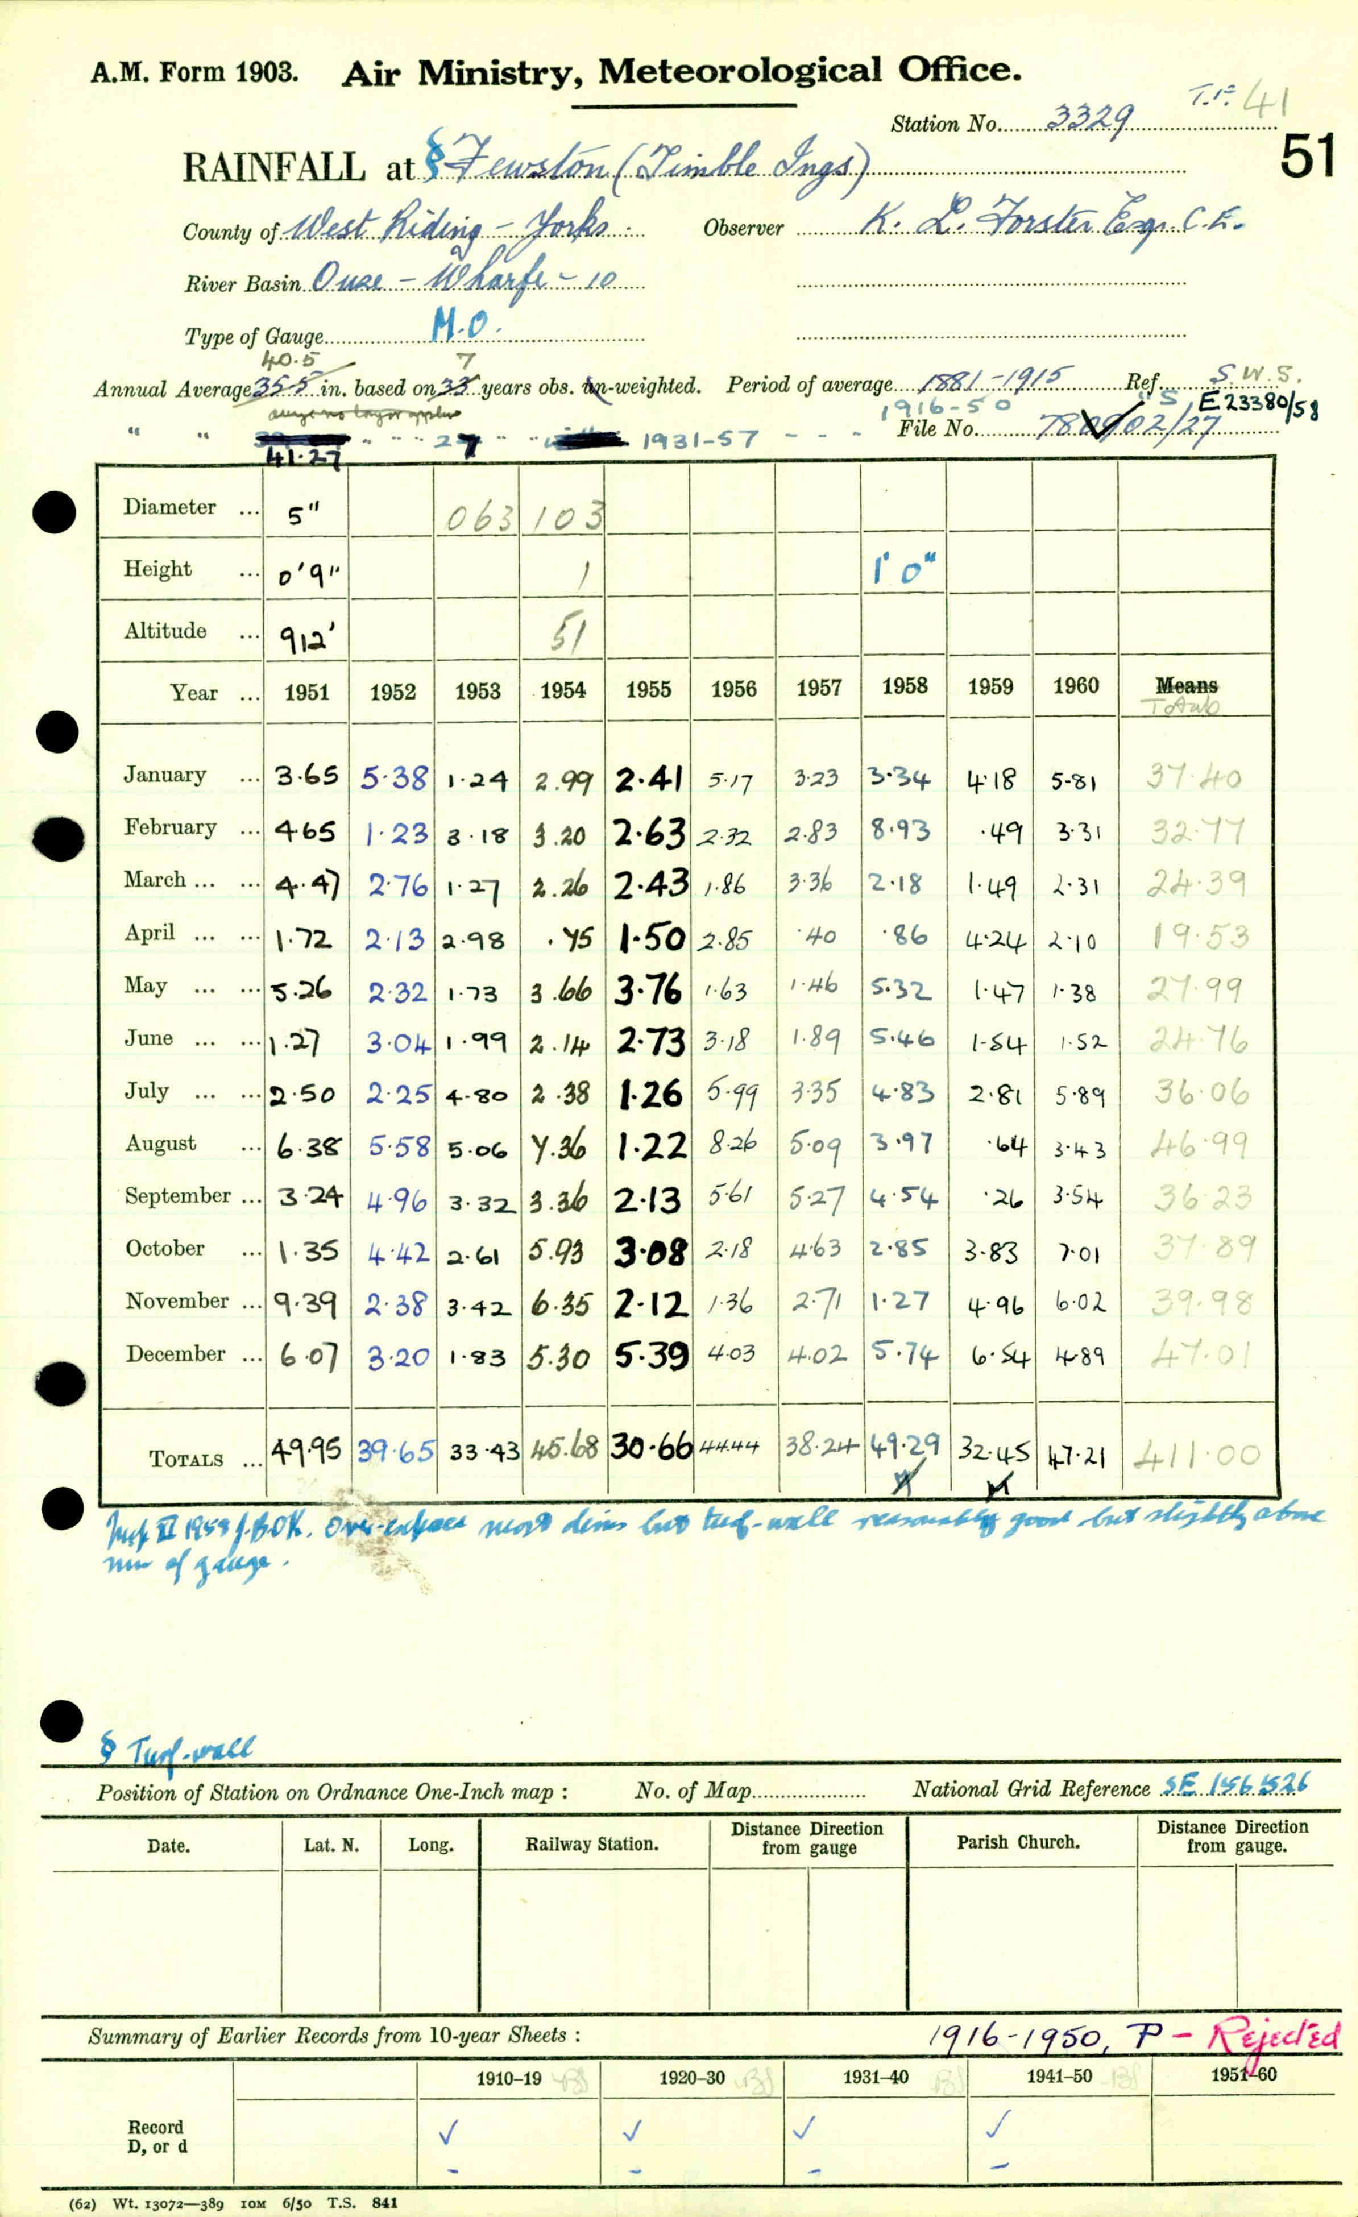 A.M. Form 1903. Air Ministry, Meteorological Office.
T.P. 41
Station No. 3329
51
RAINFALL at § Fewston (Timble Ings)
County of West Riding - Yorks. Observer K. L. Forster Esq. C.E.
River Basin Ouse - Wharfe - 10
Type of Gauge M.O.
40.5 7
Annual Average 35.5 in. based on 33 years obs. un-weighted. Period of average 1881-1915 Ref. S.W.S.
1916-50 E23380/58
" " 41.27 " " " 27 " " 1931-57 - - - File No. 02/27
Diameter ... 5" 063 103
Height ... 0'9" 1 1'0"
Altitude ... 912' 51
Year ... 1951 1952 1953 1954 1955 1956 1957 1958 1959 1960 Means
Totals
January ... 3.65 5.38 1.24 2.99 2.41 5.17 3.23 3.34 4.18 5.81 37.40
February ... 4.65 1.23 3.18 3.20 2.63 2.32 2.83 8.93 .49 3.31 32.77
March ... ... 4.47 2.76 1.27 2.26 2.43 1.86 3.36 2.18 1.49 2.31 24.39
April ... ... 1.72 2.13 2.98 .75 1.50 2.85 .40 .86 4.24 2.10 19.53
May ... ... 5.26 2.32 1.73 3.66 3.76 1.63 1.46 5.32 1.47 1.38 27.99
June ... ... 1.27 3.04 1.99 2.14 2.73 3.18 1.89 5.46 1.54 1.52 24.76
July ... ... 2.50 2.25 4.80 2.38 1.26 5.99 3.35 4.83 2.81 5.89 36.06
August ... 6.38 5.58 5.06 7.36 1.22 8.26 5.09 3.97 .64 3.43 46.99
September ... 3.24 4.96 3.32 3.36 2.13 5.61 5.27 4.54 .26 3.54 36.23
October ... 1.35 4.42 2.61 5.93 3.08 2.18 4.63 2.85 3.83 7.01 37.89
November ... 9.39 2.38 3.42 6.35 2.12 1.36 2.71 1.27 4.96 6.02 39.98
December ... 6.07 3.20 1.83 5.30 5.39 4.03 4.02 5.74 6.54 4.89 47.01
TOTALS ... 49.95 39.65 33.43 45.68 30.66 44.44 38.24 49.29 32.45 47.21 411.00
J.BOK. but turf-wall reasonably good but slightly above
rim of gauge.
§ Turf-wall
Position of Station on Ordnance One-Inch map : No. of Map National Grid Reference SE 156526
Date. Lat. N. Long. Railway Station. Distance Direction from gauge Parish Church. Distance Direction from gauge.
Summary of Earlier Records from 10-year Sheets : 1916-1950, P - Rejected
1910–19 1920–30 1931–40 1941–50 1951–60
Record ✓ ✓ ✓ ✓
D, or d - - - -
(62) Wt. 13072—389 10M 6/50 T.S. 841